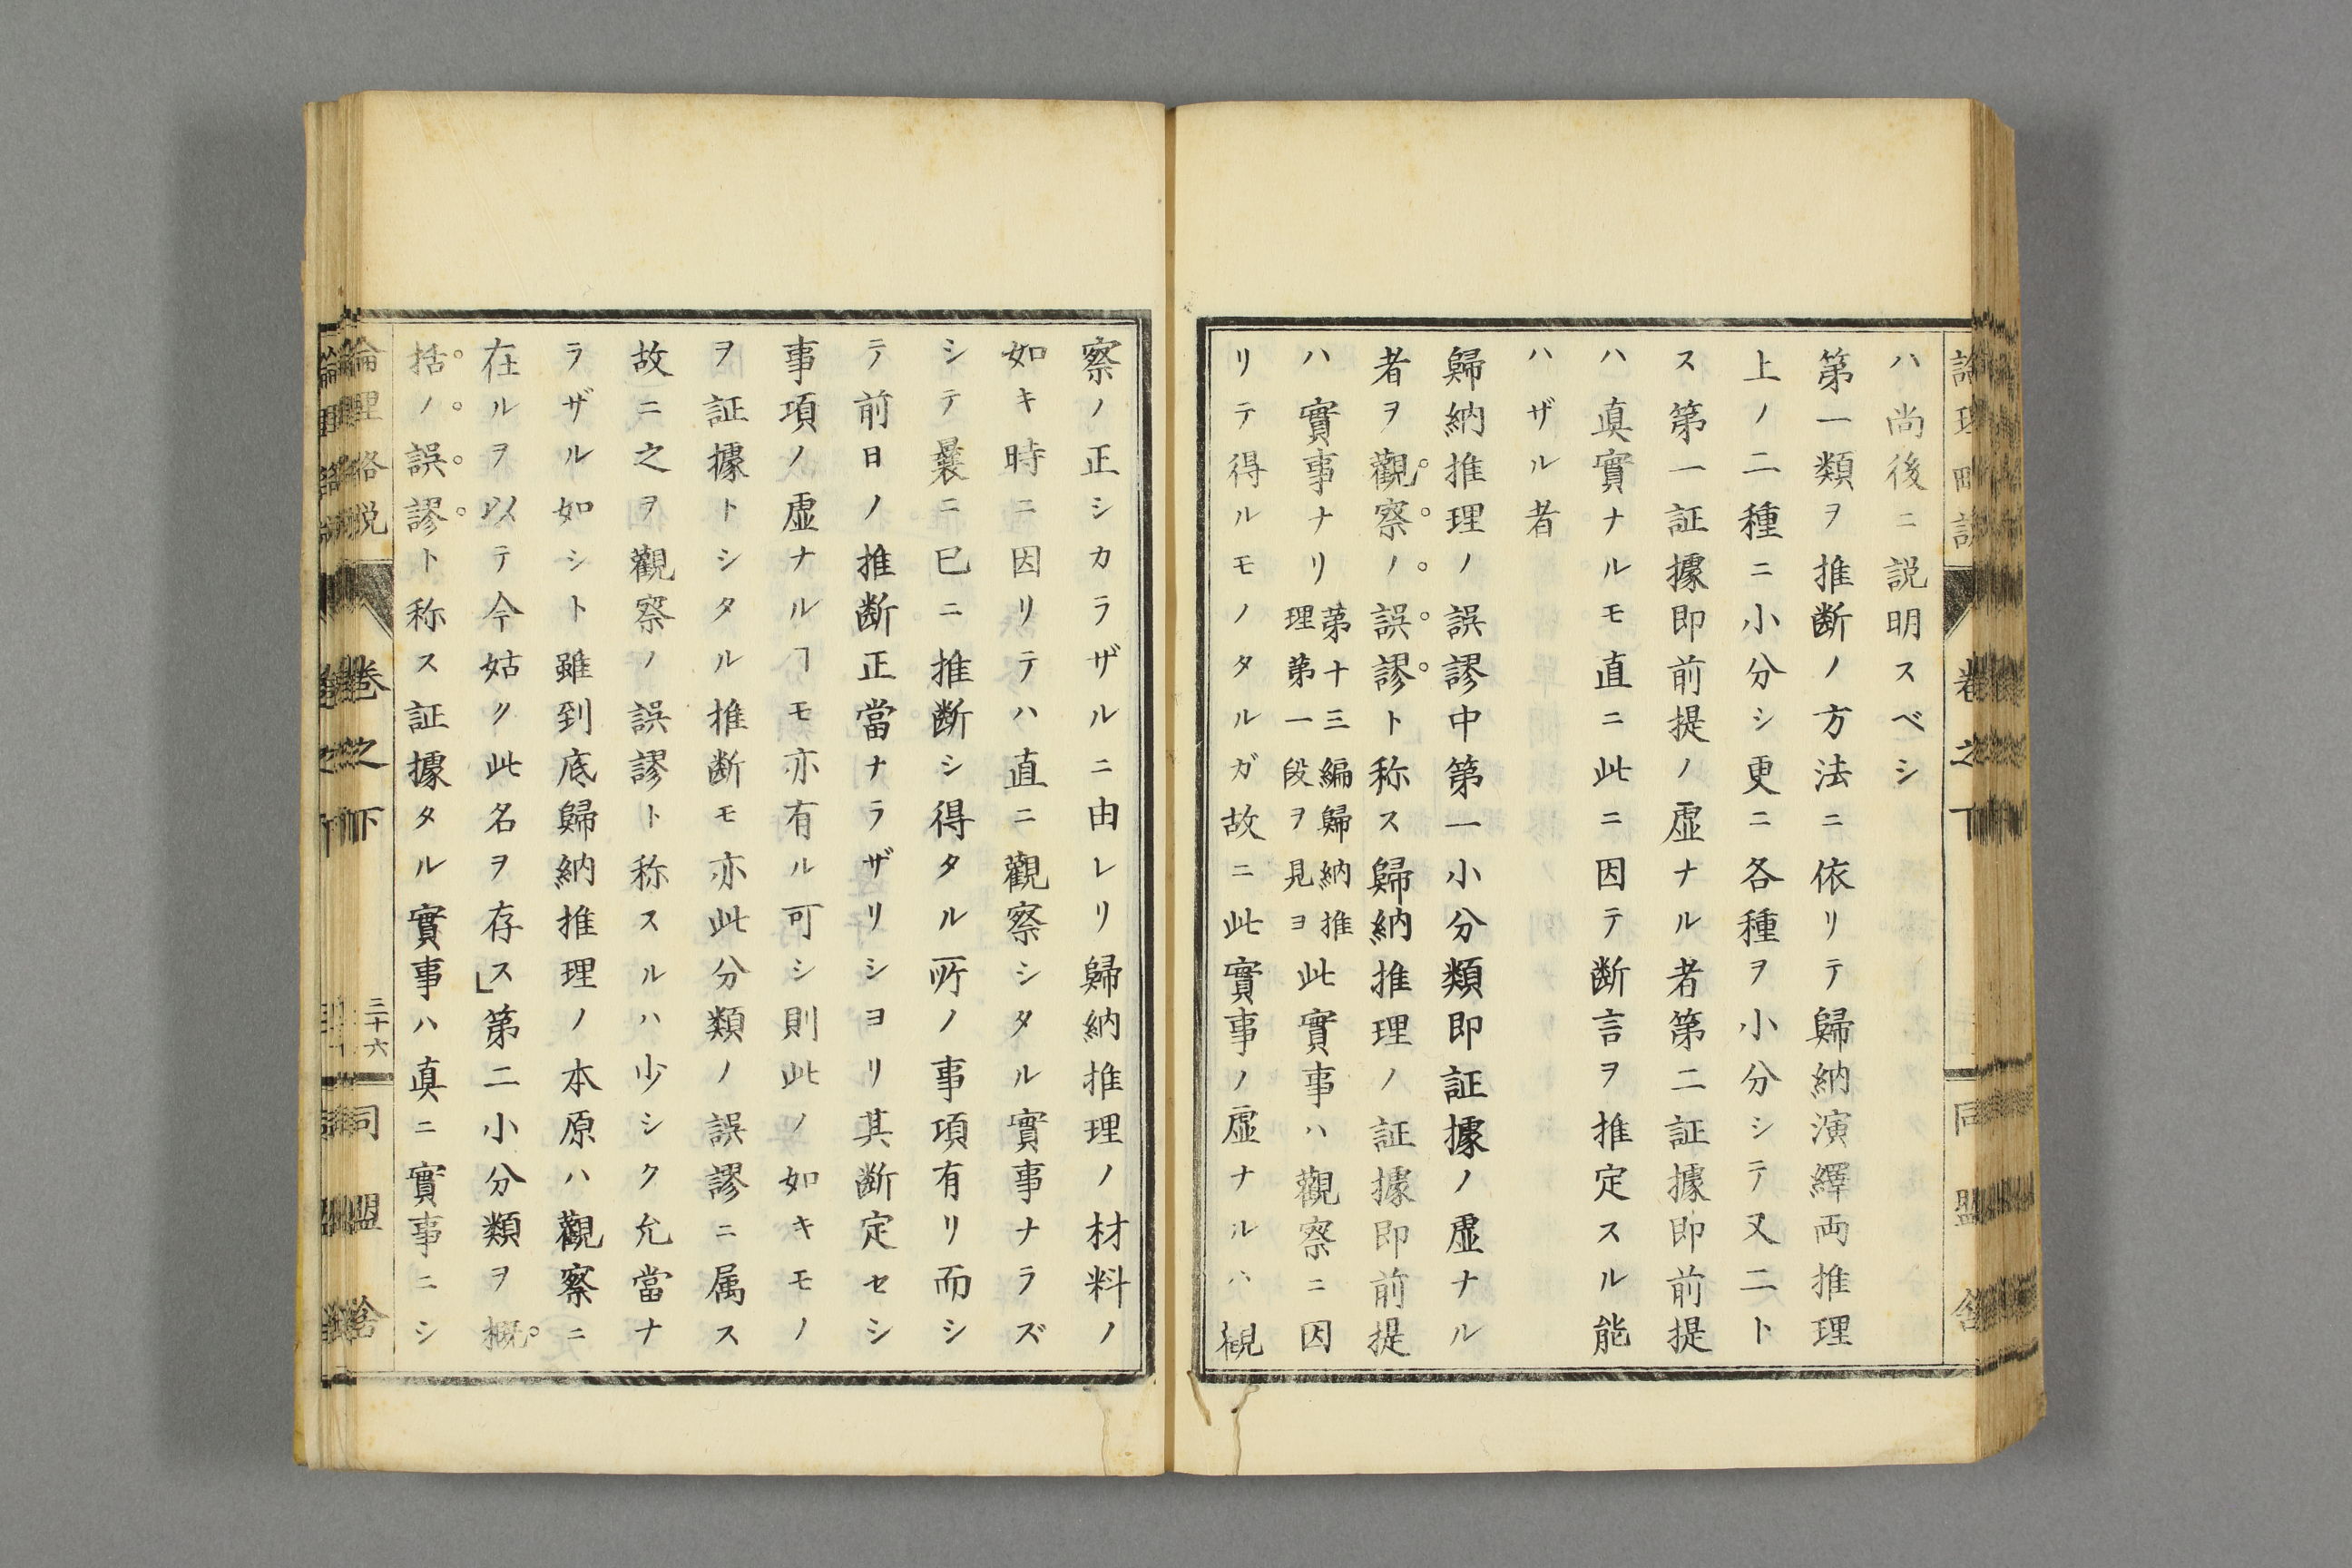 ハ尚後ニ説明スベシ
第一類ヲ推断ノ方法ニ依リテ歸納演繹両推理
上ノ二種ニ小分シ更ニ各種ヲ小分シテ又二ト
ス第一証據即前提ノ虚ナル者第二証據即前提
ハ眞實ナルモ直ニ此ニ因テ断言ヲ推定スル能
ハザル者
歸納推理ノ誤謬中第一小分類即証據ノ虚ナル
者ヲ觀察ノ誤謬ト称ス歸納推理ノ証據即前提
ハ實事ナリ第十三編歸納推理第一段ヲ見ヨ此實事ハ觀察ニ因
リテ得ルモノタルガ故ニ此實事ノ虚ナルハ觀
察ノ正シカラザルニ由レリ歸納推理ノ材料ノ
如キ時ニ因リテハ直ニ觀察シタル實事ナラズ
シテ曩ニ已ニ推断シ得タル所ノ事項有リ而シ
テ前日ノ推断正當ナラザリシヨリ其断定セシ
事項ノ虚ナルヿモ亦有ル可シ則此ノ如キモノ
ヲ証據トシタル推断モ亦此分類ノ誤謬ニ属ス
故ニ之ヲ觀察ノ誤謬ト称スルハ少シク允當ナ
ラザル如シト雖到底歸納推理ノ本原ハ觀察ニ
在ルヲ以テ今姑ク此名ヲ存ス」第二小分類ヲ概
括ノ誤謬ト称ス証據タル實事ハ眞ニ實事ニシ
論理略説
卷之下
三十六
同盟舍